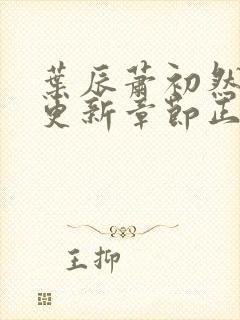 葉辰蕭初然
更新章節正
王抑